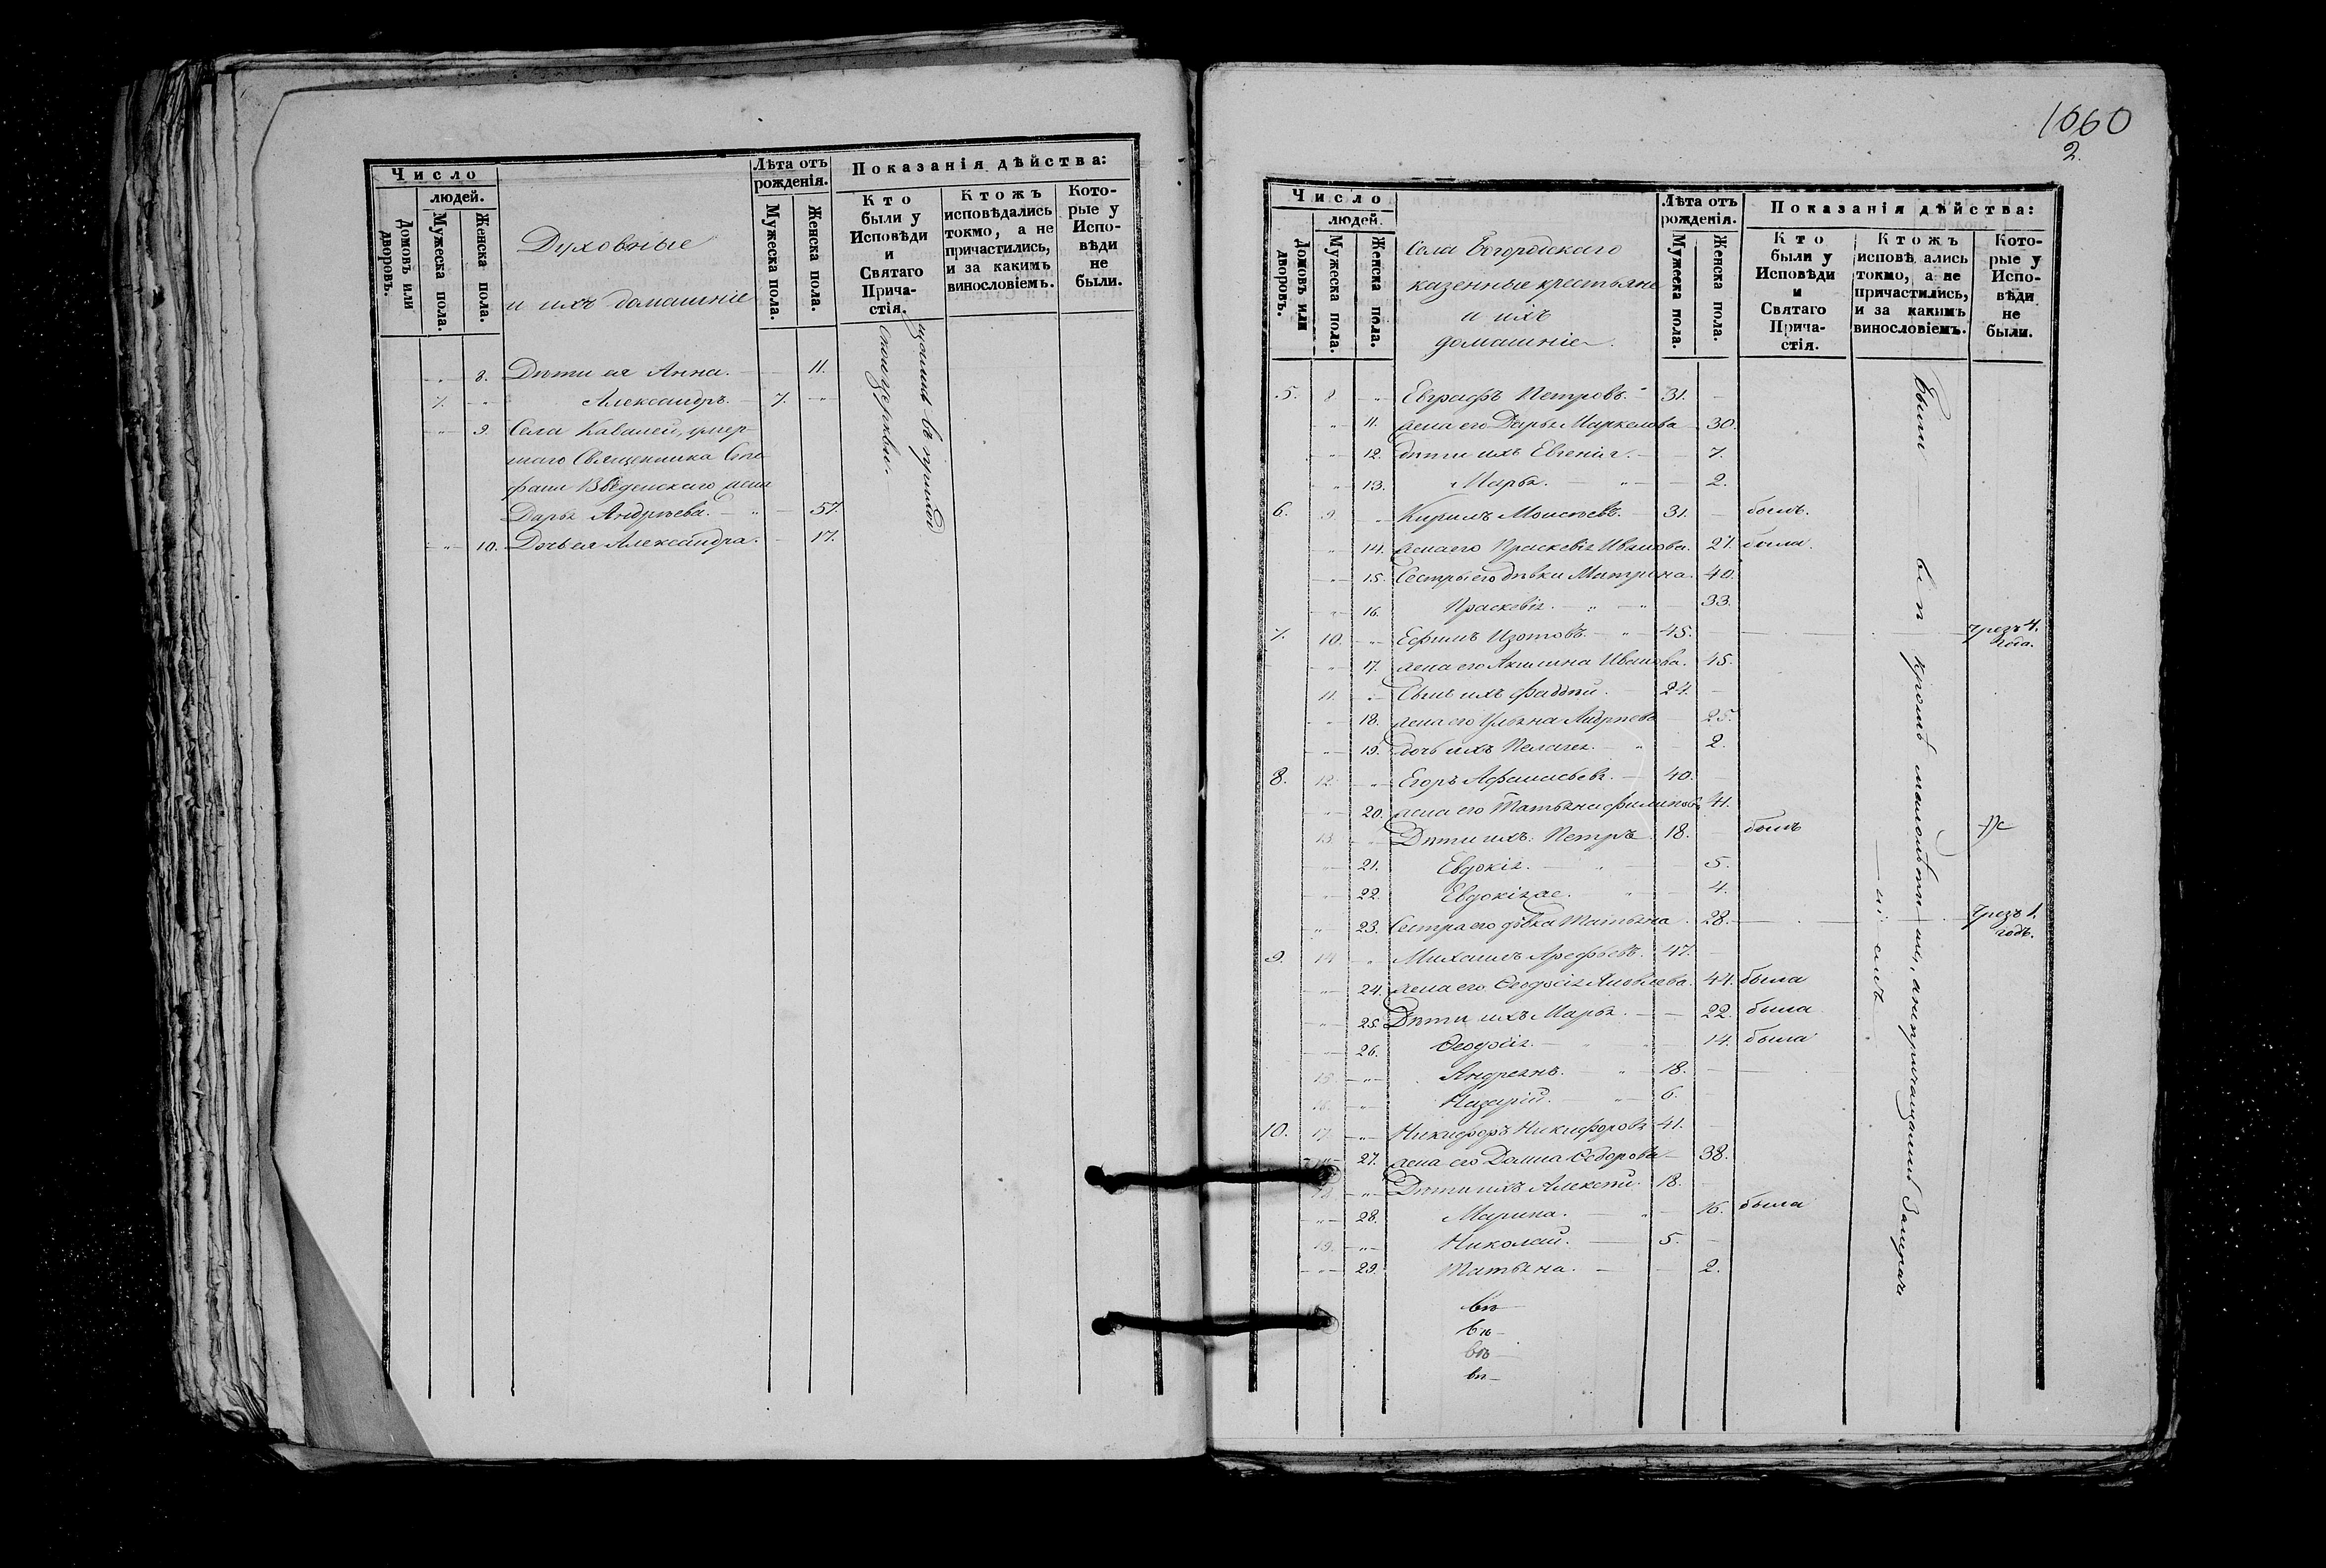 Число
людей.
Домовъ или дворовъ.
Мужеска пола.
Женска пола.
Духовные
и ихъ домашніе
Лѣта отъ рожденія.
Мужеска пола.
Женска пола.
Показанія дѣйства:
Кто были у Исповѣди и Святаго Прича-стія.
Ктожъ исповѣдались токмо, а не причастились, и за какимъ винословіемъ.
Кото-рые у Испо-вѣди не были.
8. Дѣти ея Анна. 11.
7. Александръ. 7.
9. Села Кавалей, умер-
шаго Священника Сте-
фана Введенскаго жена
Дарья Андрѣева. 57.
10. Дочь ея Александра. 17.
1060
2.
Число
людей.
Домовъ или дворовъ.
Мужеска пола.
Женска пола.
Села Богородскаго
казенные крестьяне
и ихъ
домашніе.
Лѣта отъ рожденія.
Мужеска пола.
Женска пола.
Показанія дѣйства:
Кто были у Исповѣди и Святаго Прича-стія.
Ктожъ исповѣдались токмо, а не причастились, и за какимъ винословіемъ.
Кото-рые у Испо-вѣди не были.
5. 8 Евграфъ Петровъ. 31.
11. жена его Дарья Маркелова 30.
12. дѣти ихъ Евгенія. 7.
13. Марья. 2.
6. 9. Кирилъ Моисѣевъ. 31. былъ.
14. жена его Праскевія Иванова. 27. была.
15. Сестры его дѣвки Матрона. 40.
16. Праскевія. 33.
7. 10. Ефимъ Изотовъ. 45. чрезъ 4.
года.
17. жена его Акилина Иванова. 45.
11. Сынъ ихъ Фаддѣй. 24.
18. жена его Ульяна Андрѣева 25.
19. дочь ихъ Пелагея. 2.
8. 12. Егоръ Афанасьевъ. 40.
20. жена его Татьяна Филипова 41.
13. Дѣти ихъ: Петръ 18. былъ
21. Евдокія. 5.
22. Евдокія же. 4.
23. Сестра его дѣвка Татьяна 28. Чрезъ 1.
годъ.
9. 14 Михаилъ Арефьевъ. 47.
24. жена его Ѳеодосія Яковлева. 44. была
25. Дѣти ихъ Марья. 22. была
26. Ѳеодосія. 14. была
15. Андреянъ. 18.
16. Назарій. 6.
10. 17. Никифоръ Никифоровъ 41.
27. жена его Домна Ѳедорова 38.
18. Дѣти ихъ Алексѣй. 18.
28. Марина. 16. была
19. Николай. 5.
29. Татьяна. 2.
Были
кромѣ малолѣтн